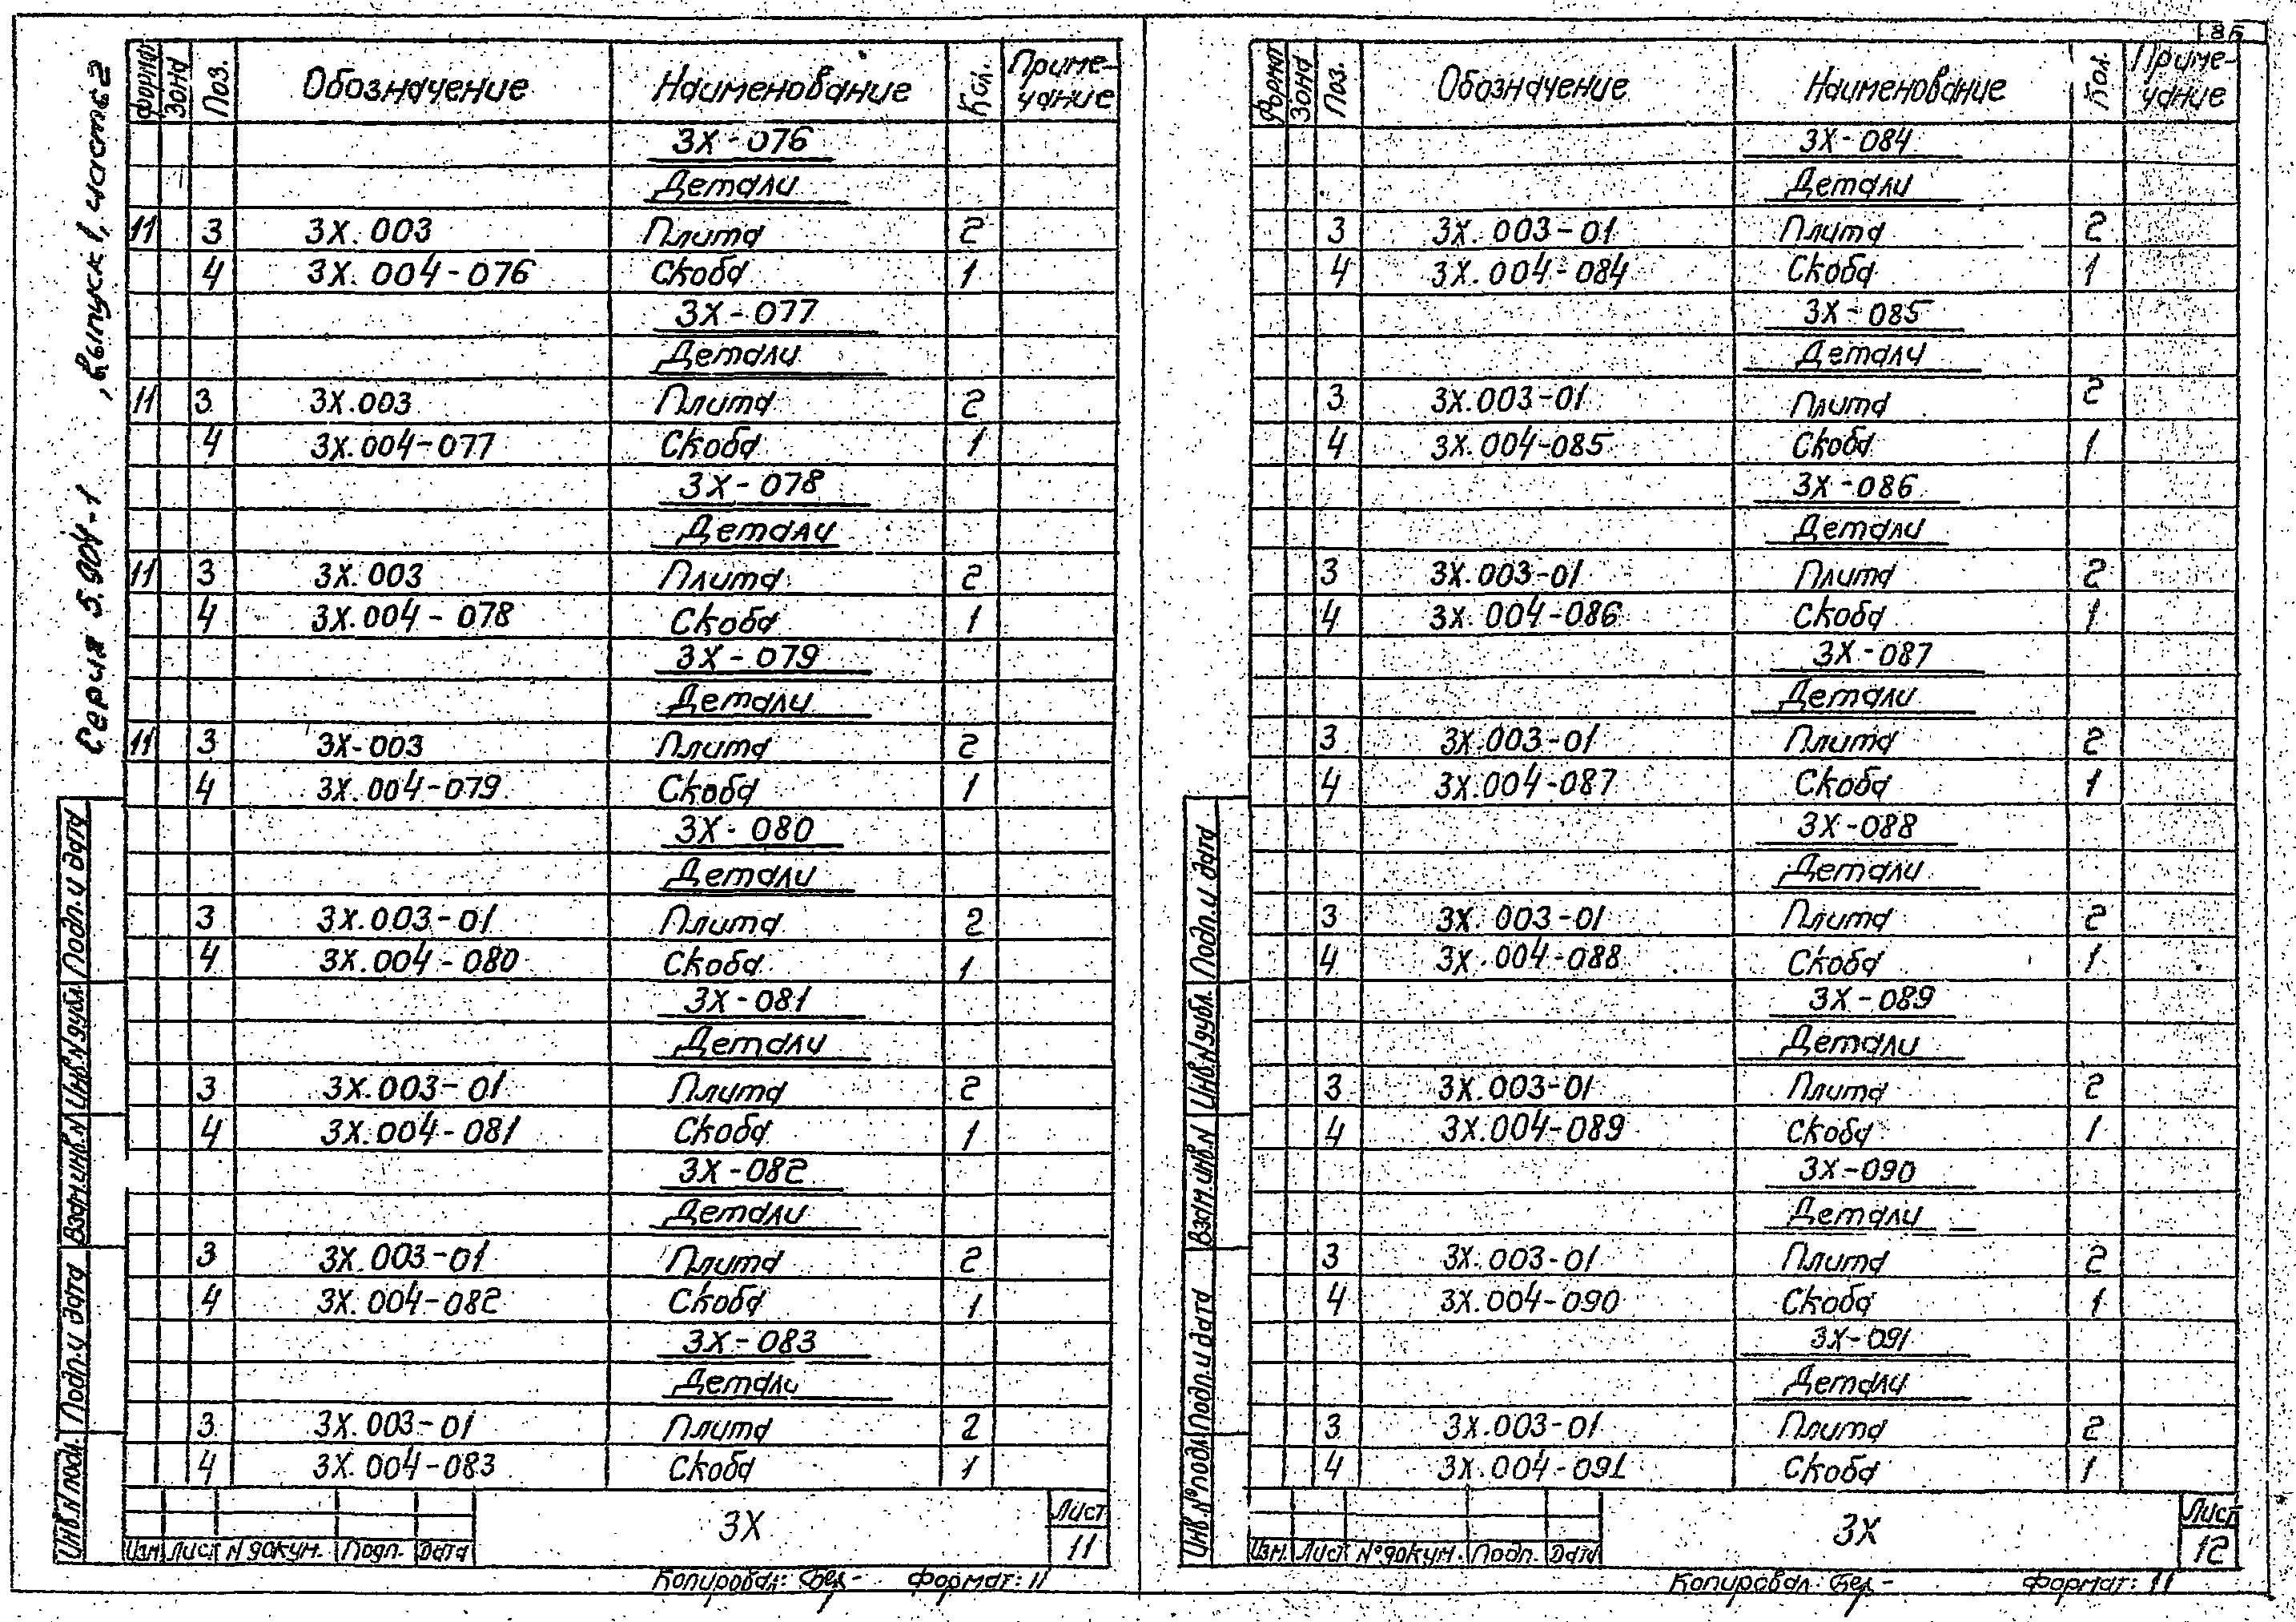 86
Серия 5.904-1 , выпуск 1, часть 2
Формат Зона Поз. Обозначение Наименование Кол. Примечание
ЗХ-076
Детали
11 3 ЗХ.003 Плита 2
4 ЗХ.004-076 Скоба 1
ЗХ-077
Детали
11 3 ЗХ.003 Плита 2
4 ЗХ.004-077 Скоба 1
ЗХ-078
Детали
11 3 ЗХ.003 Плита 2
4 ЗХ.004-078 Скоба 1
ЗХ-079
Детали
11 3 ЗХ-003 Плита 2
4 ЗХ.004-079 Скоба 1
ЗХ-080
Детали
3 ЗХ.003-01 Плита 2
4 ЗХ.004-080 Скоба 1
ЗХ-081
Детали
3 ЗХ.003-01 Плита 2
4 ЗХ.004-081 Скоба 1
ЗХ-082
Детали
3 ЗХ.003-01 Плита 2
4 ЗХ.004-082 Скоба 1
ЗХ-083
Детали
3 ЗХ.003-01 Плита 2
4 ЗХ.004-083 Скоба 1
Инв.N подл. Подп. и дата Взам.инв.N Инв.N дубл. Подп. и дата
Изм Лист N докум. Подп. Дата
ЗХ
Лист
11
Копировал: Формат: 11
Формат Зона Поз. Обозначение Наименование Кол. Примечание
ЗХ-084
Детали
3 ЗХ.003-01 Плита 2
4 ЗХ.004-084 Скоба 1
ЗХ-085
Детали
3 ЗХ.003-01 Плита 2
4 ЗХ.004-085 Скоба 1
ЗХ-086
Детали
3 ЗХ.003-01 Плита 2
4 ЗХ.004-086 Скоба 1
ЗХ-087
Детали
3 ЗХ.003-01 Плита 2
4 ЗХ.004-087 Скоба 1
ЗХ-088
Детали
3 ЗХ.003-01 Плита 2
4 ЗХ.004-088 Скоба 1
ЗХ-089
Детали
3 ЗХ.003-01 Плита 2
4 ЗХ.004-089 Скоба 1
ЗХ-090
Детали
3 ЗХ.003-01 Плита 2
4 ЗХ.004-090 Скоба 1
ЗХ-091
Детали
3 ЗХ.003-01 Плита 2
4 ЗХ.004-091 Скоба 1
Инв.№ подл Подп. и дата Взам.инв.N Инв.N дубл. Подп. и дата
Изм. Лист №докум. Подп. Дата
ЗХ
Лист
12
Копировал Формат: 11